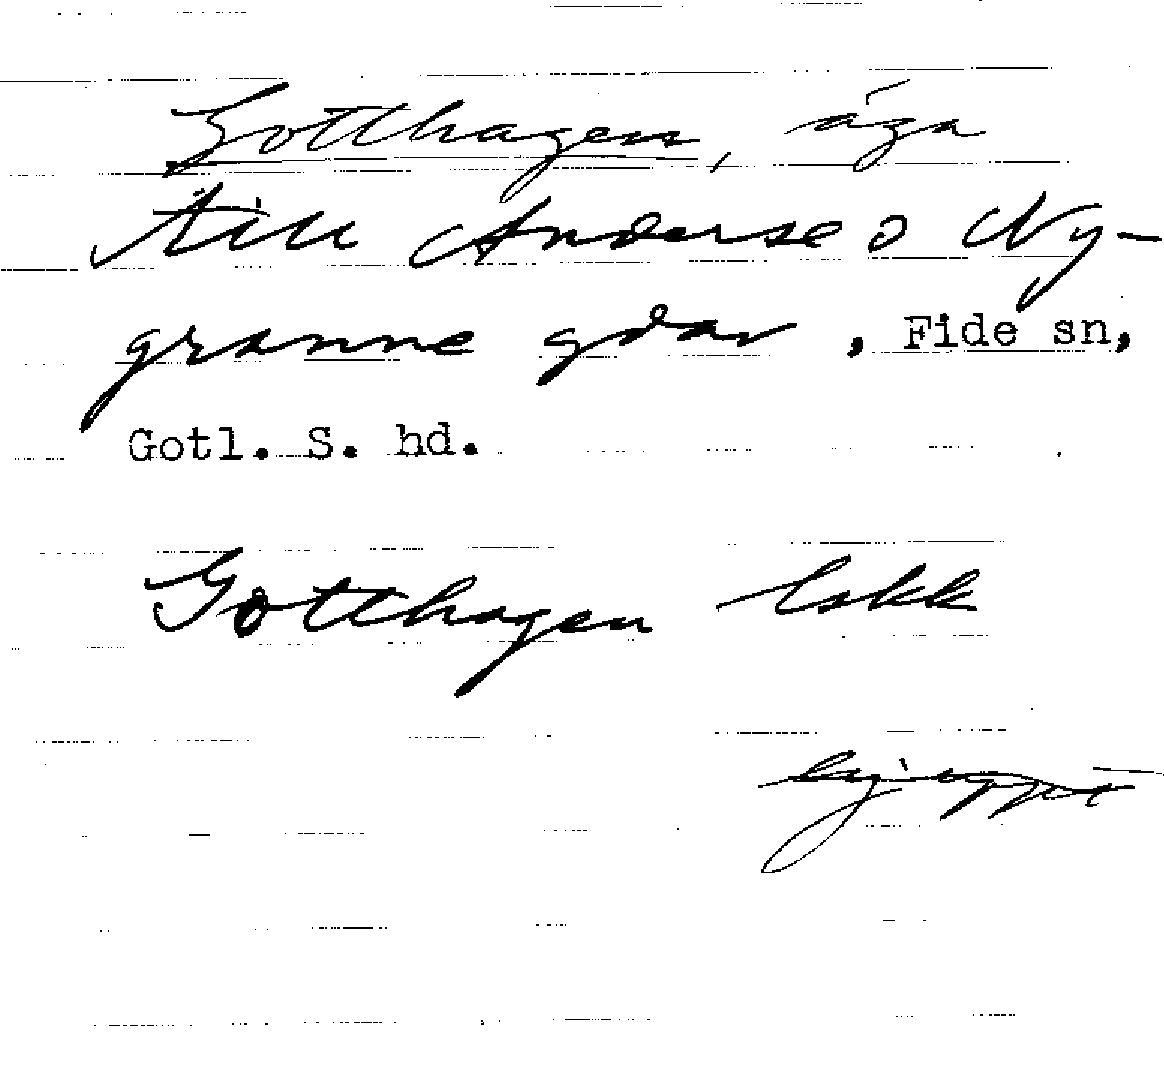 Gotthagen, äga
till Anderse o Ny-
granne gdar, Fide sn,
Gotl. S. hd.
Gotthagen lokk
ej uppt